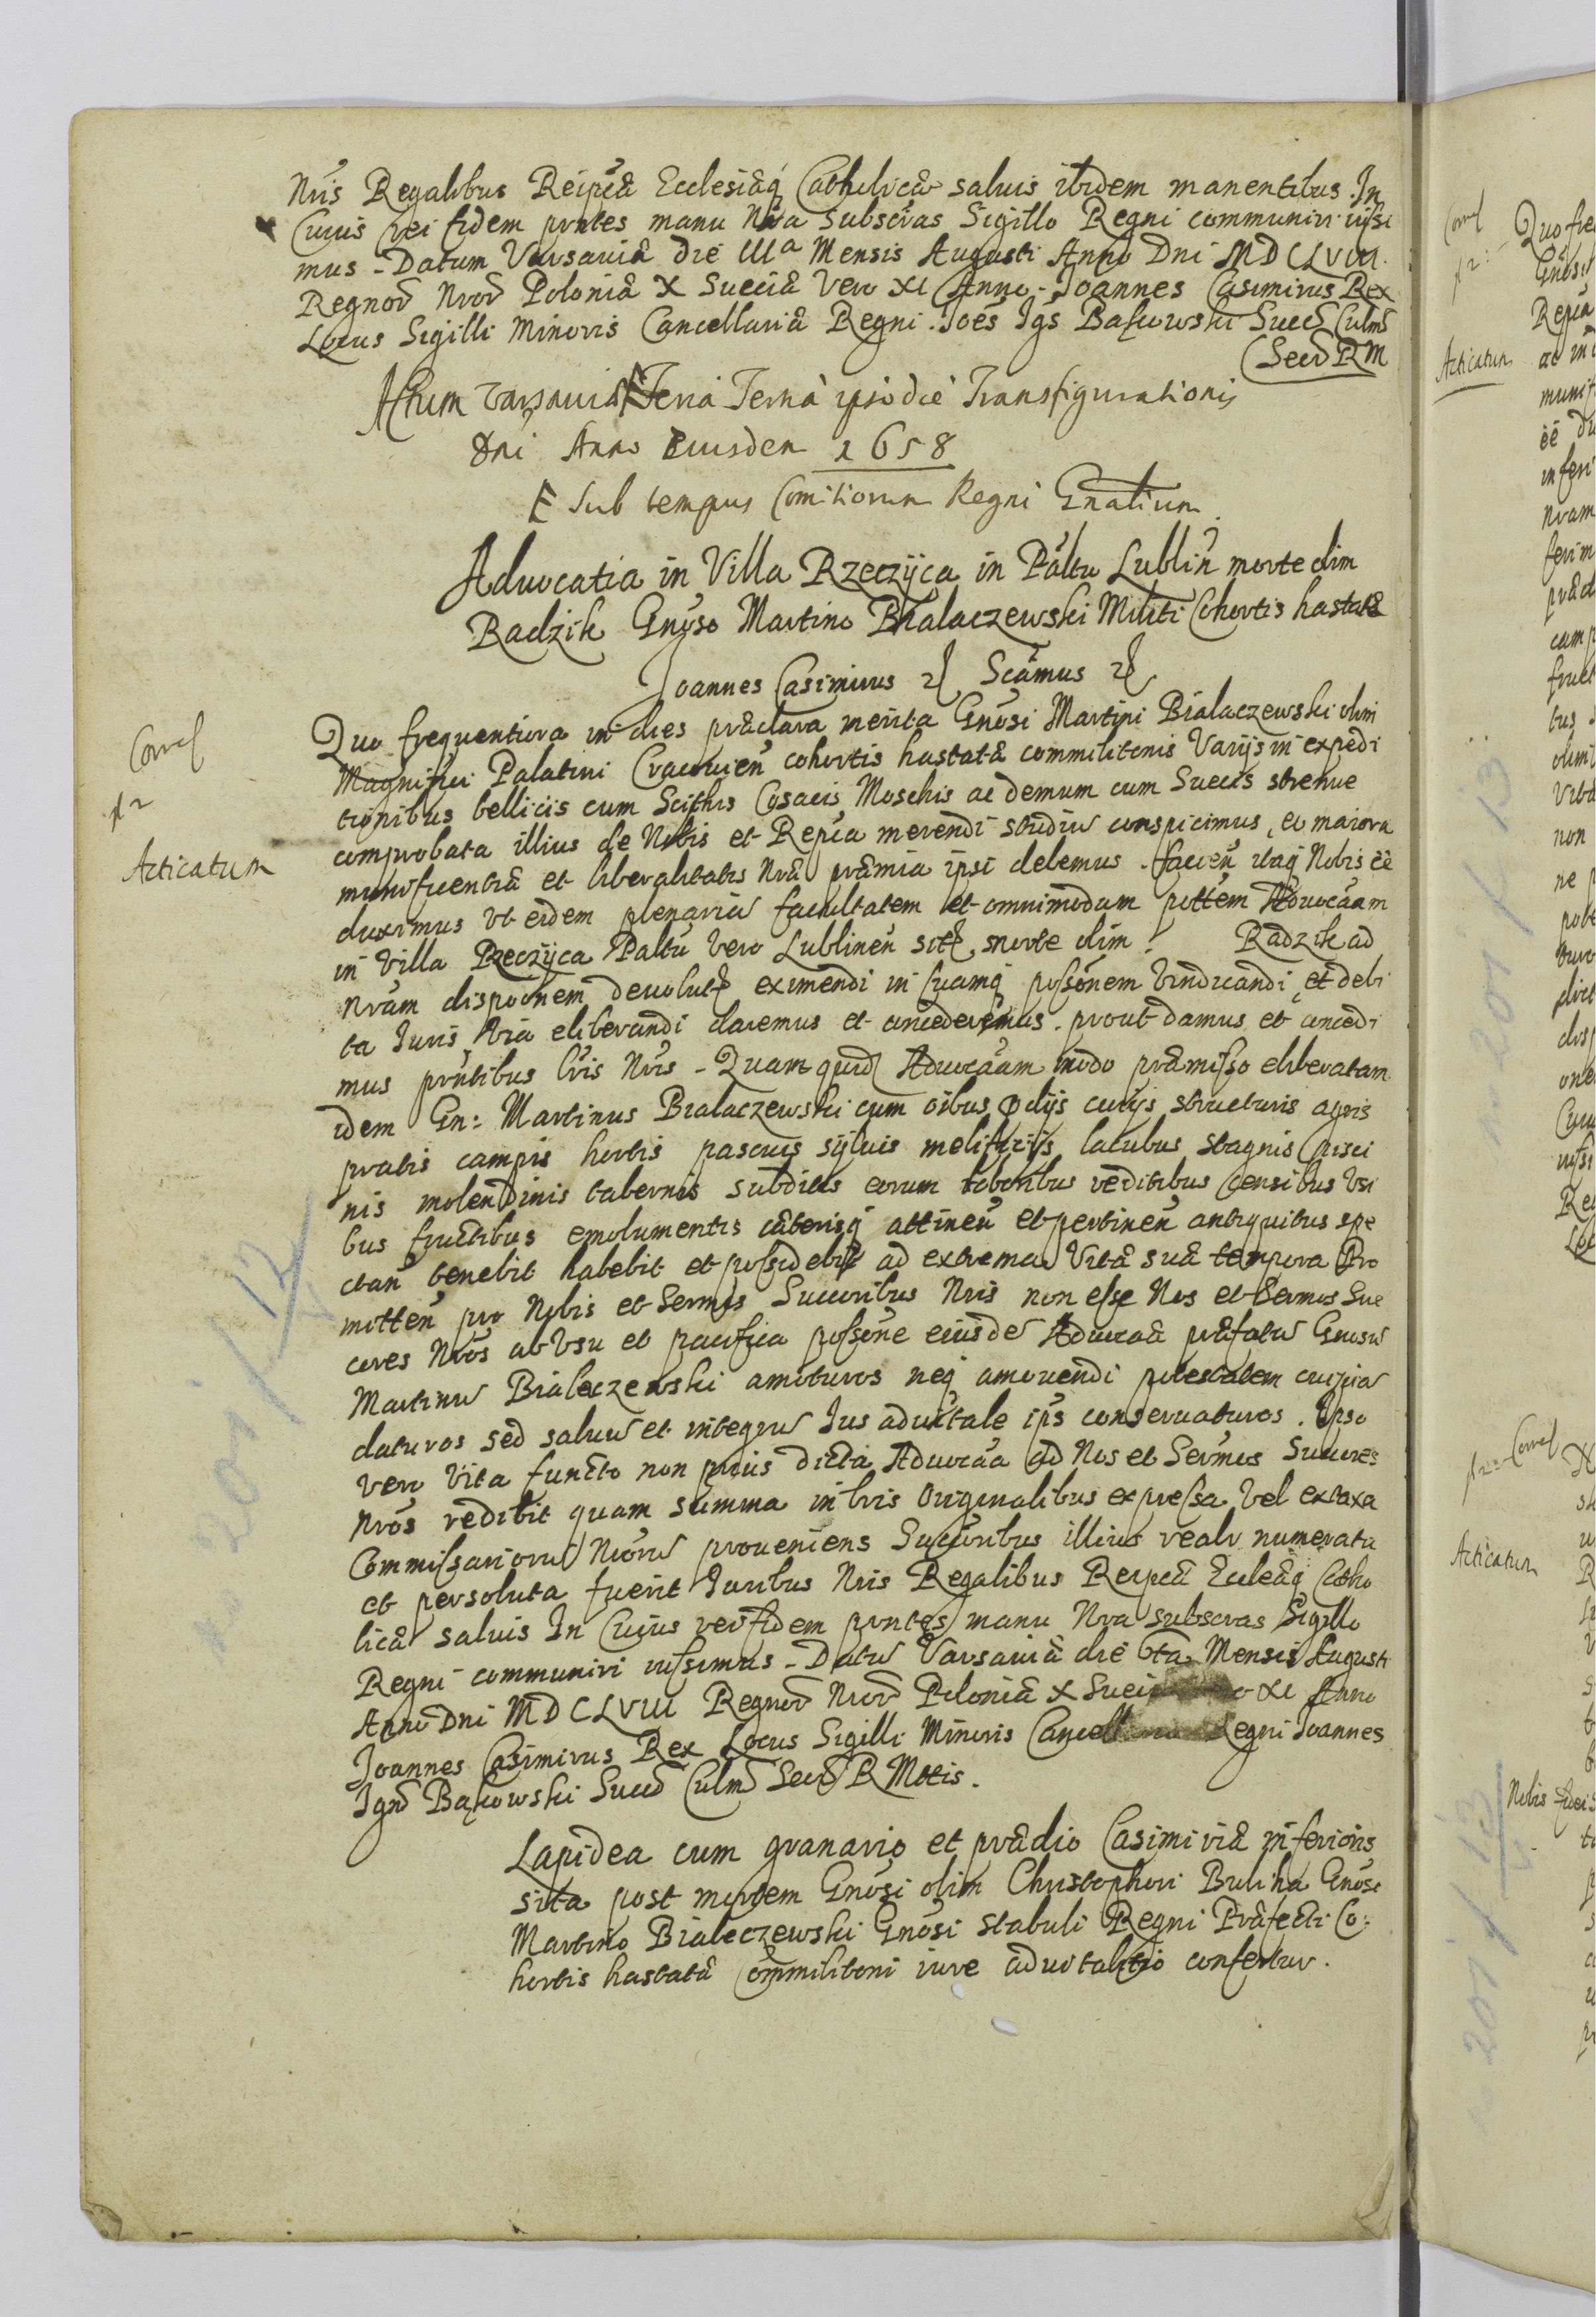 Nris Regalibus Reipcæ Ecclesiæq Catholicæ saluis ibidem manentibus. In
Cuius rei fidem prntes manu Nra subscras Sigillo Regni communiri iussi
mus - Datum Varsauiæ die IIIa Mensis Augusti Anno Dni MDCLVIII.
Regnor Nror Poloniæ X Sueciæ Vero XI Anno - Joannes Casimirus Rex
Locus Sigilli Minoris Cancellariæ Regni. Joes Igs Bąkowski Succ Culm
Secr R M
Actum Varsauiæ Feria Tertia ipso die Transfigurationis
Dni Anno Eiusdem 1658
Sub tempus Comitiorum Regni Gnalium.
Aduocatia in Villa Rzeczÿca in Paltu Lublin morte olim
Radzik Gnoso Martino Bialaczewski Militi Cohortis hastatæ
Joannes Casimirus Scamus
Corrct
Acticatum
Quo frequentiora in dies præclara merita Gnosi Martini Bialaczewski olim
Magnifici Palatini Cracouien cohortis hastatæ commilitonis Varijs in expedi
tionibus bellicis cum Scithis Cosacis Moschis ac demum cum Suecis strenue
comprobata illius de Nobis et Repca merendi studiu conspicimus, eo maiora
munificentiæ et liberalitatis Nræ præmia ipsi debemus. facien itaq Nobis ee
duximus vt eidem plenariã facultatem et omnimodam pottem Aduocaam
in Villa Rzeczÿca Paltu vero Lublinen sit morte olim Radzik ad
Nram disponem deuolut eximendi in suamq possonem vindicandi et debi
ta Iuris via eliberandi daremus et concederemus. prout damus et concedi
mus prntibus lris Nris - Quam quid Aduocaam modo præmisso eliberatam
idem Gn: Martinus Bialaczewski cum oibus pdijs curijs structuris agris
pratis campis hortis pascuis sÿluis melificijs lacubus stagnis pisci
nis molendinis tabernis subditis eorum laboribus reditibus censibus vsi
bus fructibus emolumentis cæterisq attinen et pertinen antiquitus spe
ctan tenebit habebit et possidebit ad extrema Vitæ suæ tempora Pro
mitten pro Nobis et Sermis Succoribus Nris non esse Nos et Sermos Suc
cores Nros ab vsu et pacifica possone eiusde Aducaæ præfatu Gnosu
Martinu Bialeczewski amoturos neq amouendi potestatem cuipia
daturos sed saluu et integru Ius aduitale ips conseruaturos. Ipso
vero Vita functo non prius dicta Aduocaa ad Nos et Sermos Succres
Nros redibit quam summa in lris Originalibus expressa vel ex taxa
Commissarioru Nroru proueniens Succoribus illius realr numerata
et persoluta fuerit Iuribus Nris Regalibus Reipcæ Eccleæq Catho
licæ saluis In Cuius rei fidem prntes manu Nra subscras Sigillo
Regni communiri iussimus - Datu Varsauiæ die 6ta Mensis Augusti
Anno Dni MDCLVIII Regnor Nror Poloniæ X Sueci o XI Anno
Joannes Casimirus Rex Locus Sigilli Minoris Cancell Regni Joannes
Ign Bąkowski Succ Culm Secr R Mtis.
Lapidea cum granario et prædio Casimiriæ inferioris
sita post mortem Gnosi olim Christophori Buliha Gnoso
Martino Bialeczewski Gnosi Stabuli Regni Præfecti Co:
hortis hastatæ Commilitoni iure aduitalitio confertur.
Quo fre
Gnosi
Repca
Acticatum
Acticatum
Nobis